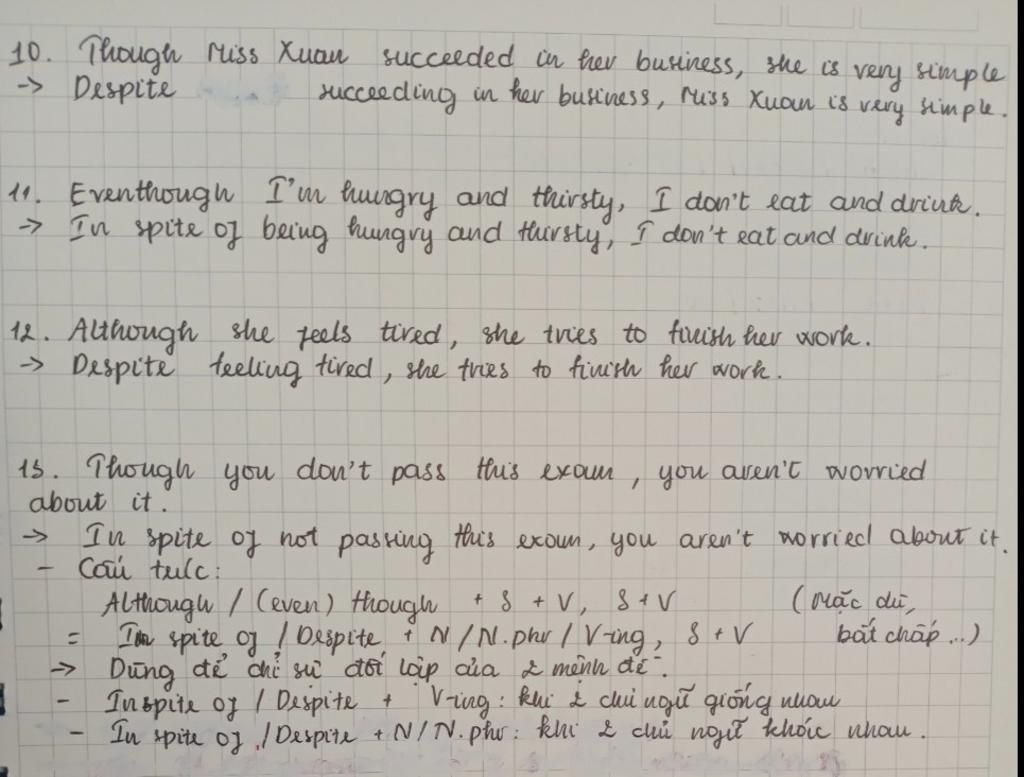 10. Though Miss Xuan succeeded in her business, she is very simple
→ Despite succeeding in her business, Miss Xuan is very simple.
11. Eventhough I'm hungry and thirsty, I don't eat and drink.
→ In spite of being hungry and thirsty, I don't eat and drink.
12. Although she feels tired, she tries to finish her work.
→ Despite feeling tired, she tries to finish her work.
13. Though you don't pass this exam, you aren't worried
about it.
→ In spite of not passing this exam, you aren't worried about it.
- Cấu trúc:
Although / (even) though + S + V, S + V (Mặc dù,
= In spite of / Despite + N / N.phr / V-ing, S + V bất chấp...)
→ Dùng để chỉ sự đối lập của 2 mệnh đề.
- Inspite of / Despite + V-ing: khi 2 chủ ngữ giống nhau
- In spite of / Despite + N / N.phr: khi 2 chủ ngữ khác nhau.